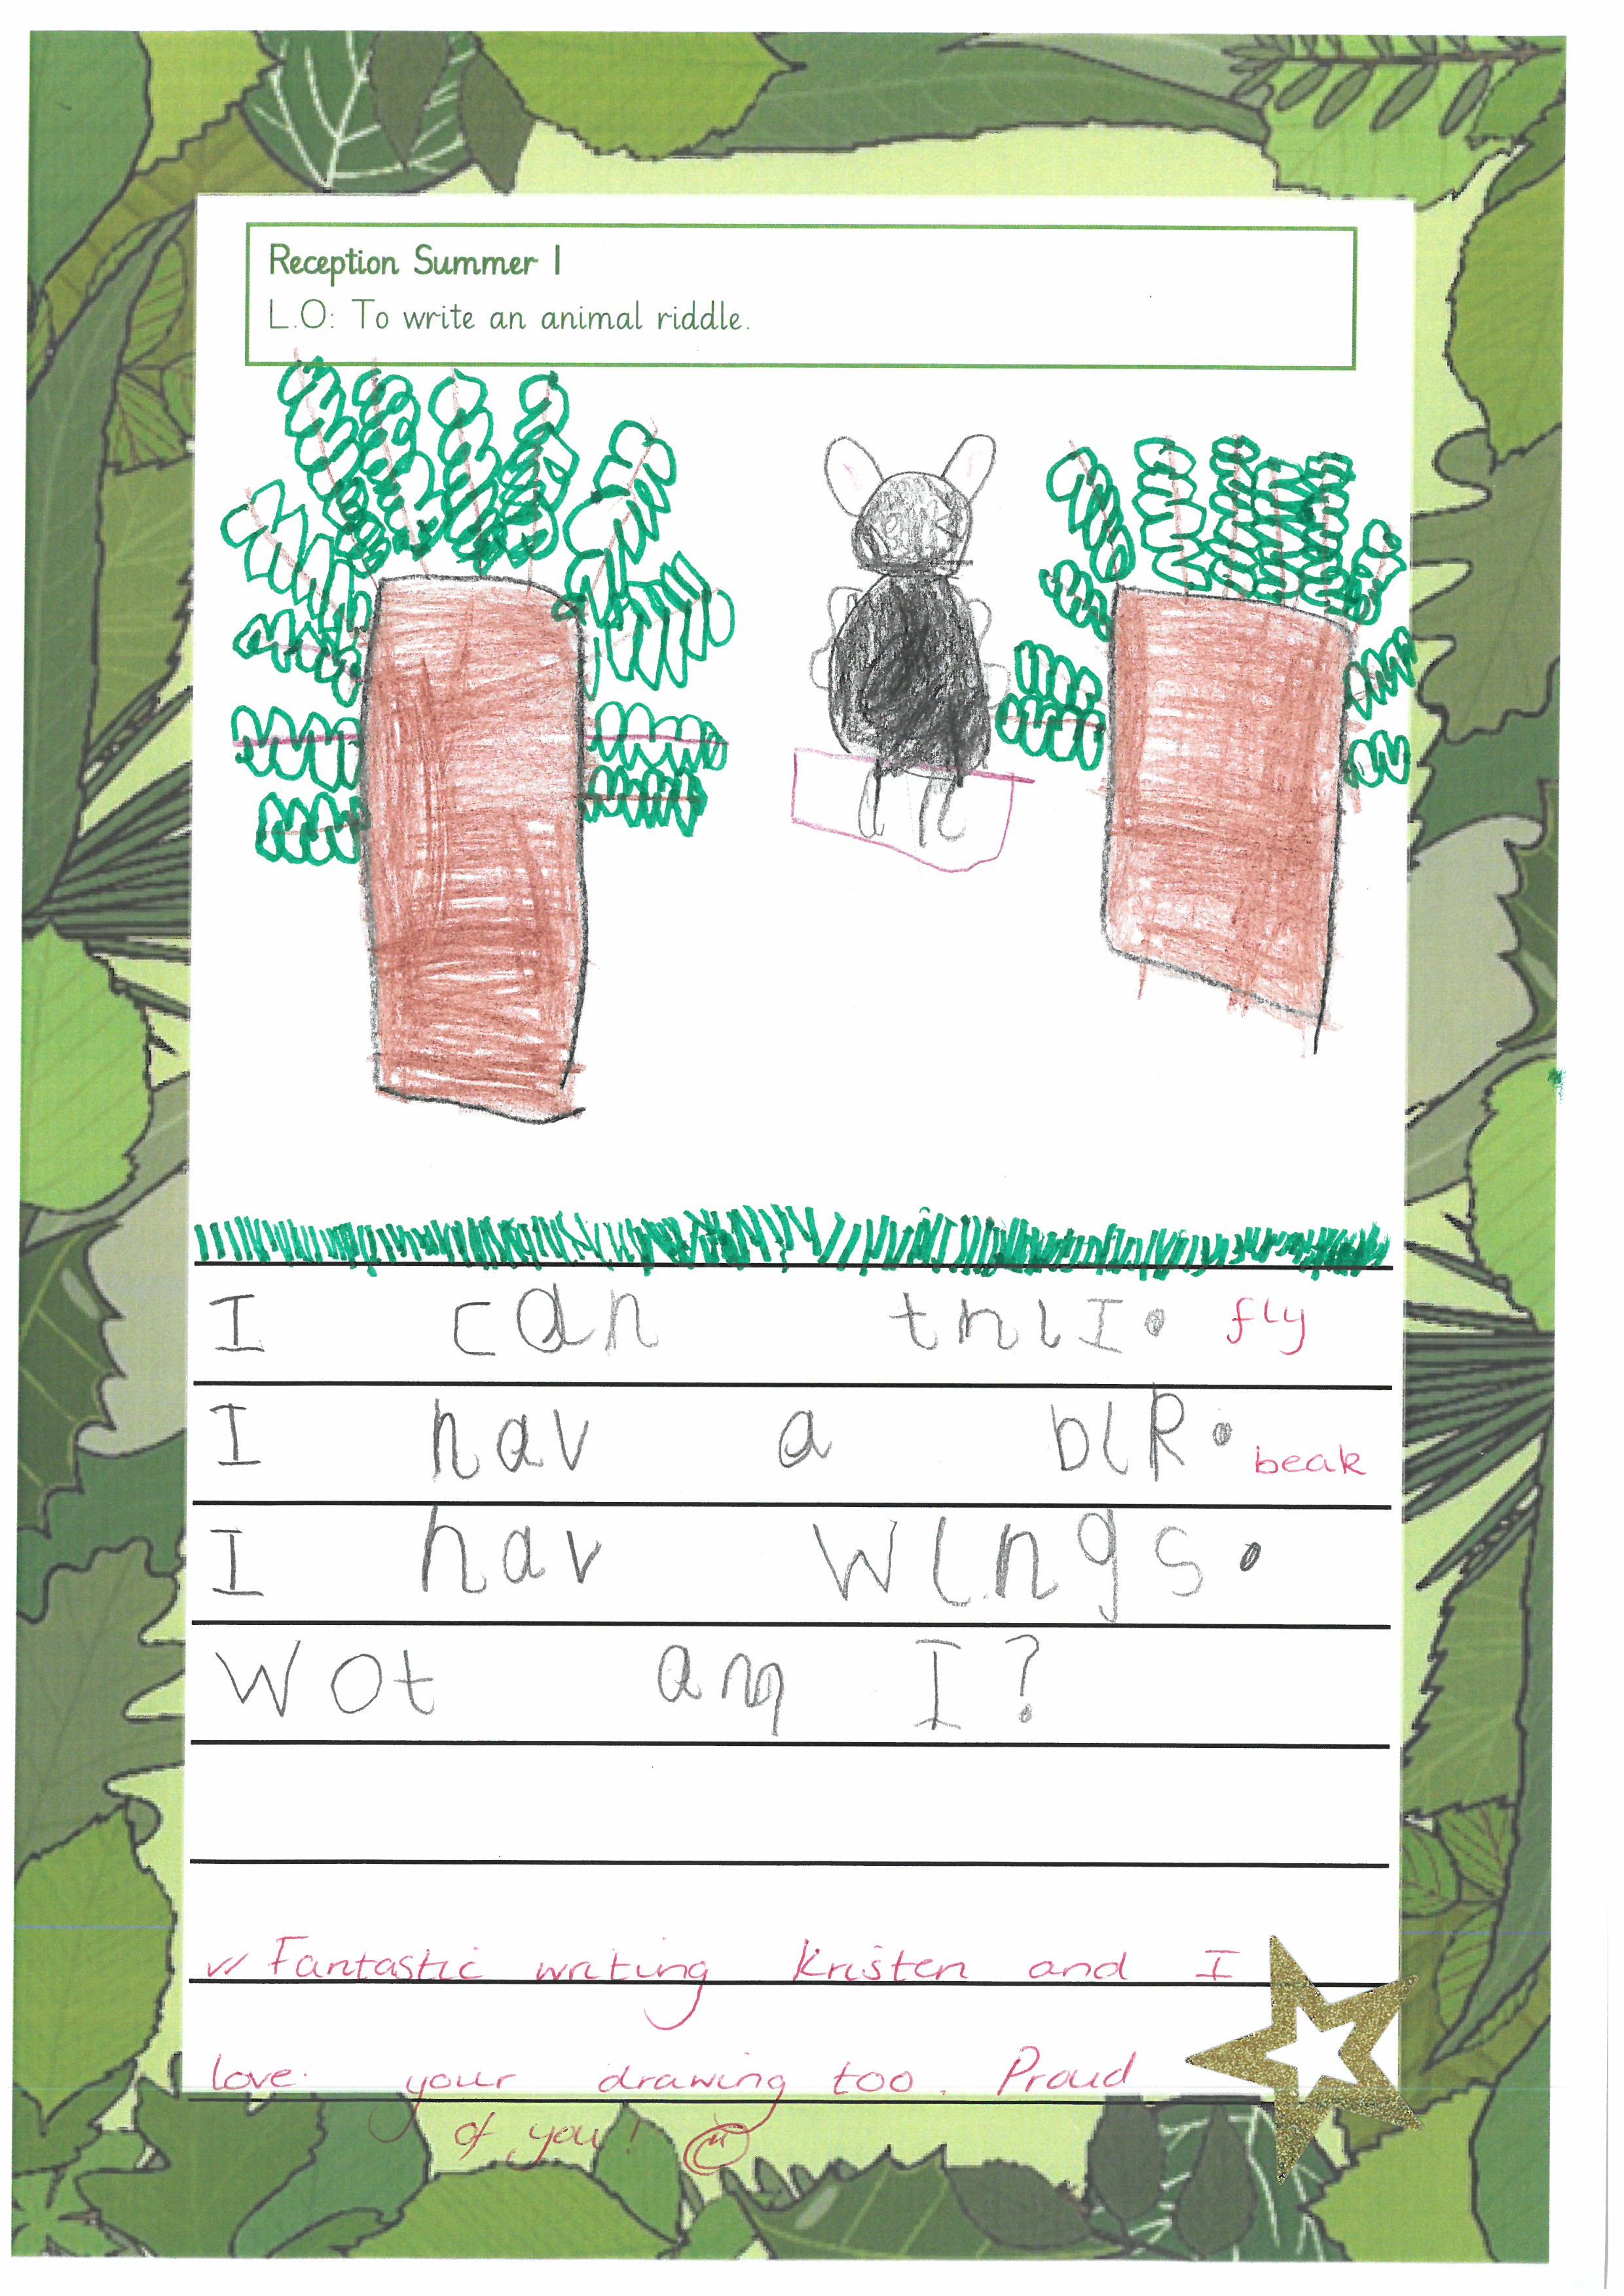 Reception Summer 1
L.O: To write an animal riddle.
I can tnlI. fly
I hav a blR. beak
I hav wings.
Wot am I?
✓✓ Fantastic writing Kristen and I
love your drawing too. Proud
of you!